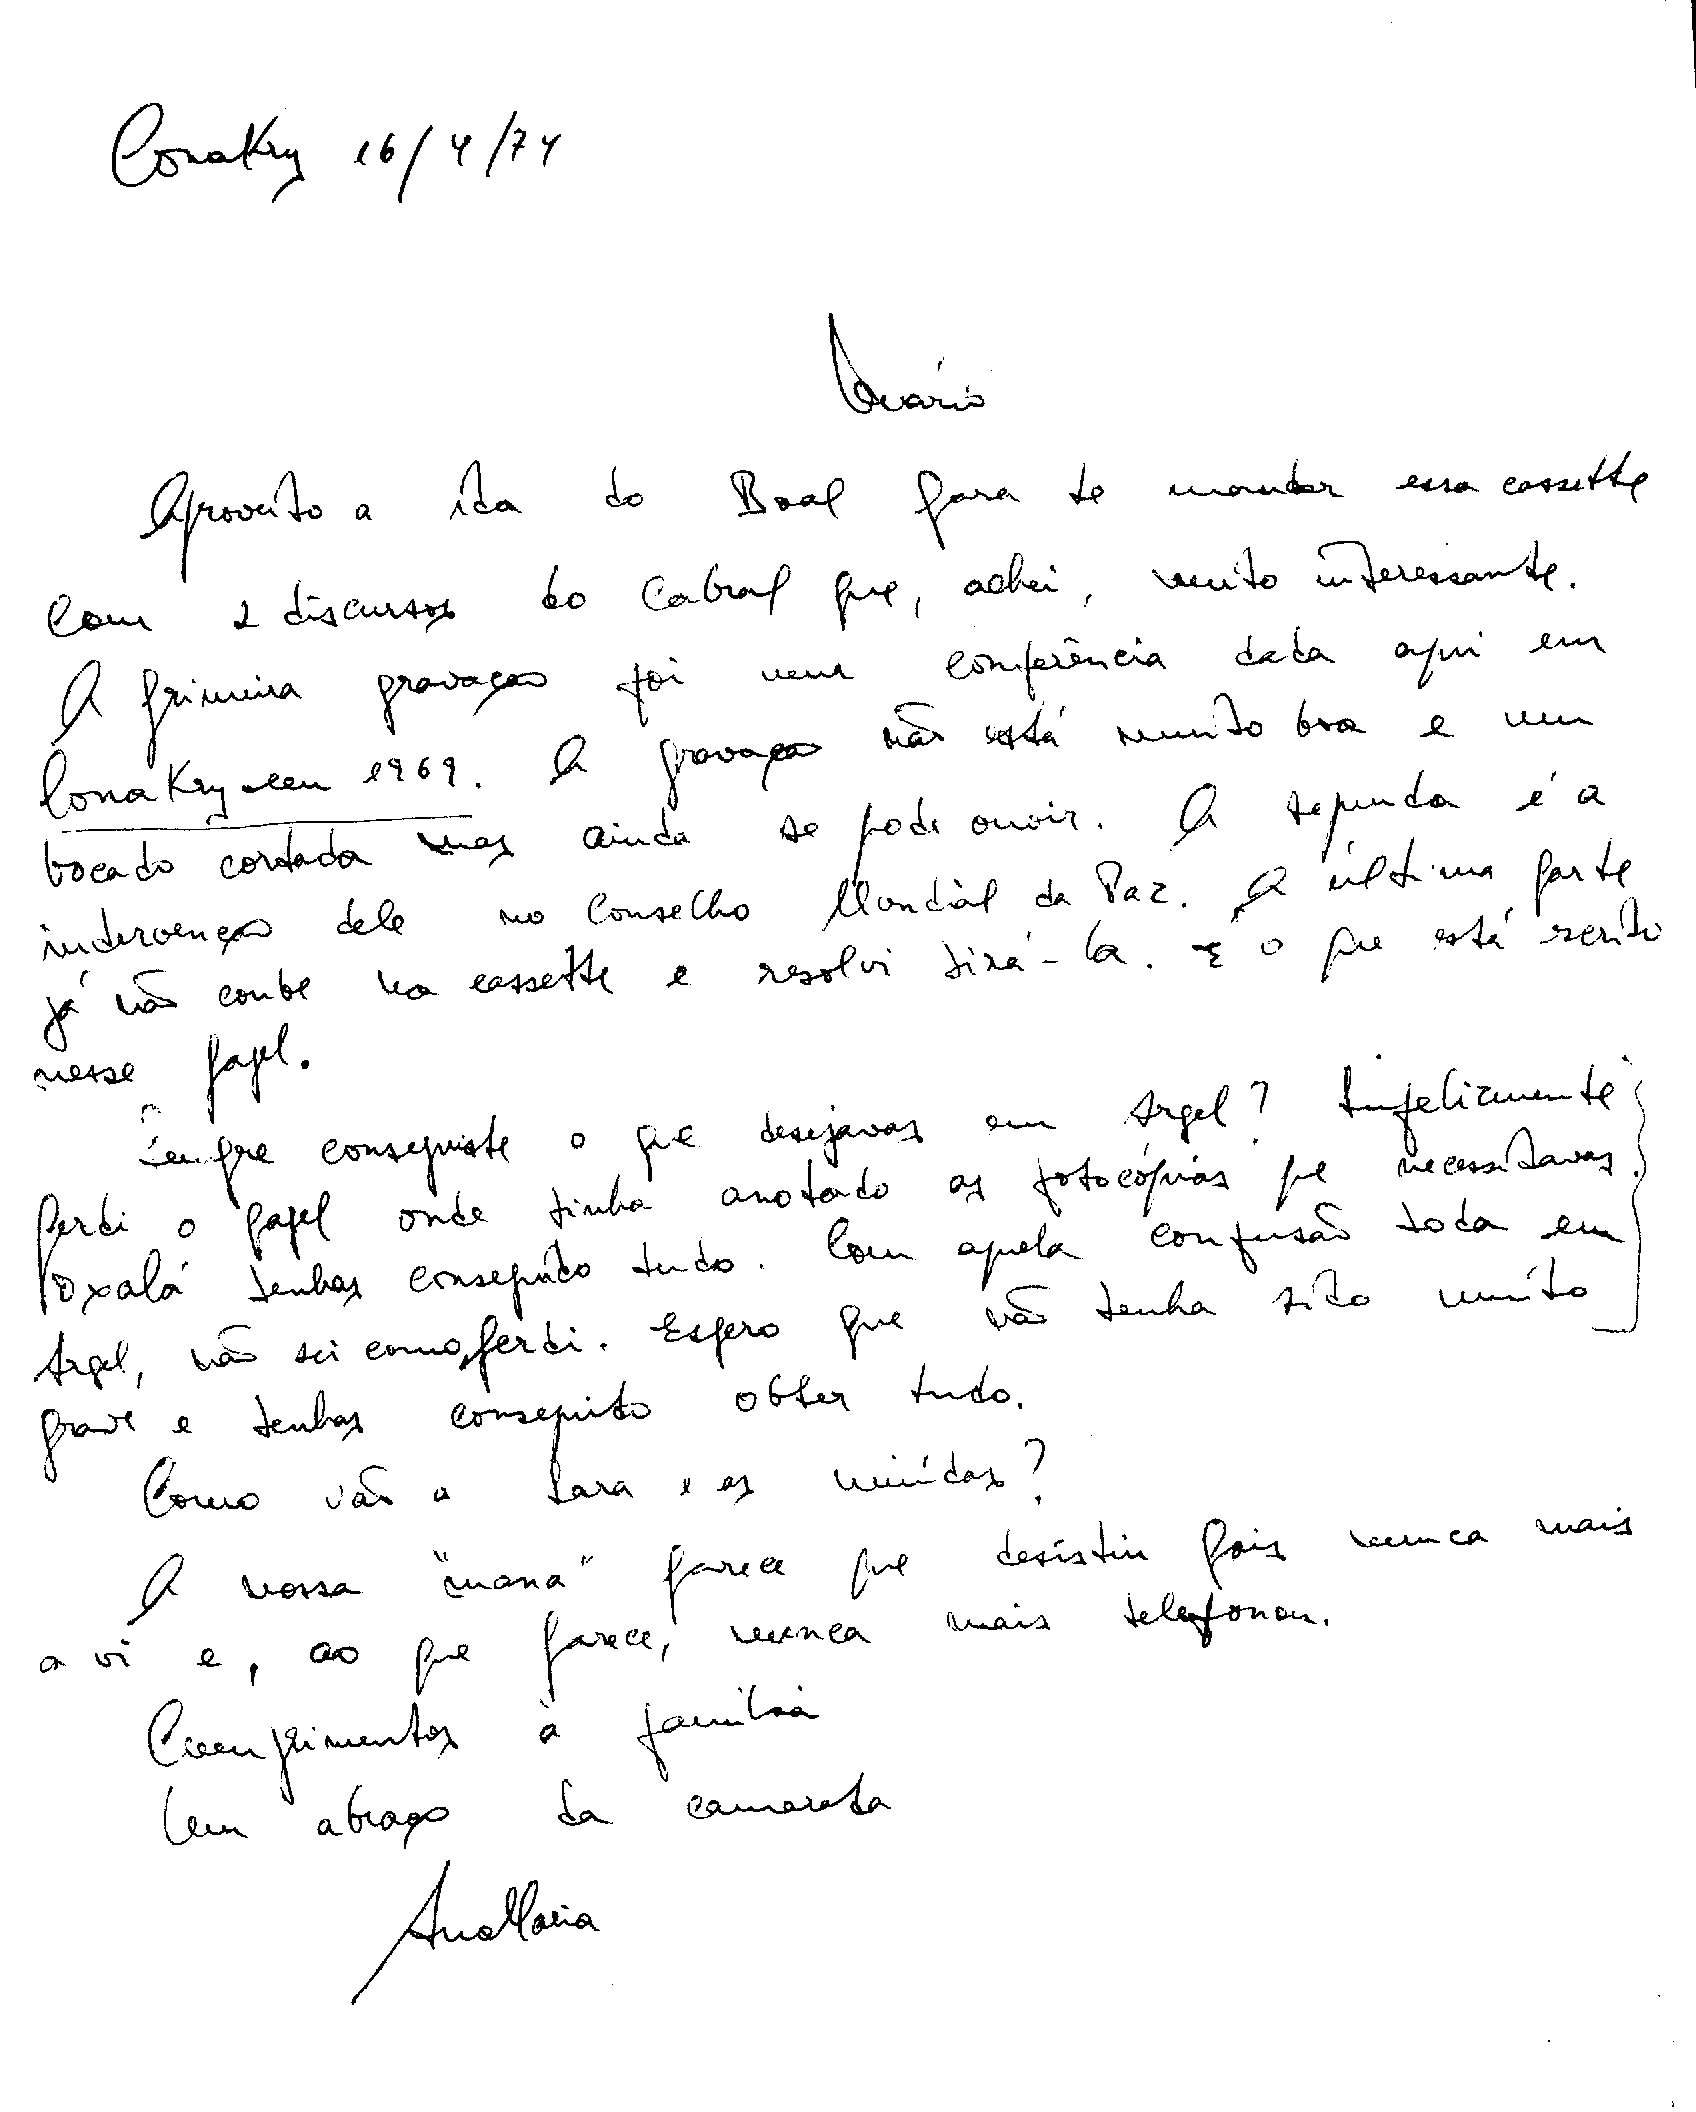 Conakry 16/4/74
Mário
Aproveito a ida do Boal para te mandar essa cassette
com 2 discursos do Cabral que, achei, muito interessante.
A primeira gravação foi num conferência dada aqui em
Conakry em 1969. A gravação não está muito boa e um
bocado cortada mas ainda se pode ouvir. A segunda é a
intervenção dele no Conselho Mundial da Paz. A última parte
já não coube na cassette e resolvi tirá-la. É o que está escrito
nesse papel.
Sempre conseguiste o que desejavas em Argel? Infelizmente
perdi o papel onde tinha anotado as fotocópias que necessitavas.
Oxalá tenhas conseguido tudo. Com aquela confusão toda em
Argel, não sei como perdi. Espero que não tenha sido muito
grave e tenhas conseguido obter tudo.
Como vão a Sara e as miúdas?
A vossa "mana" parece que desistiu pois nunca mais
a vi e, ao que parece, nunca mais telefonou.
Cumprimentos à família
Um abraço da camarada
Ana Maria